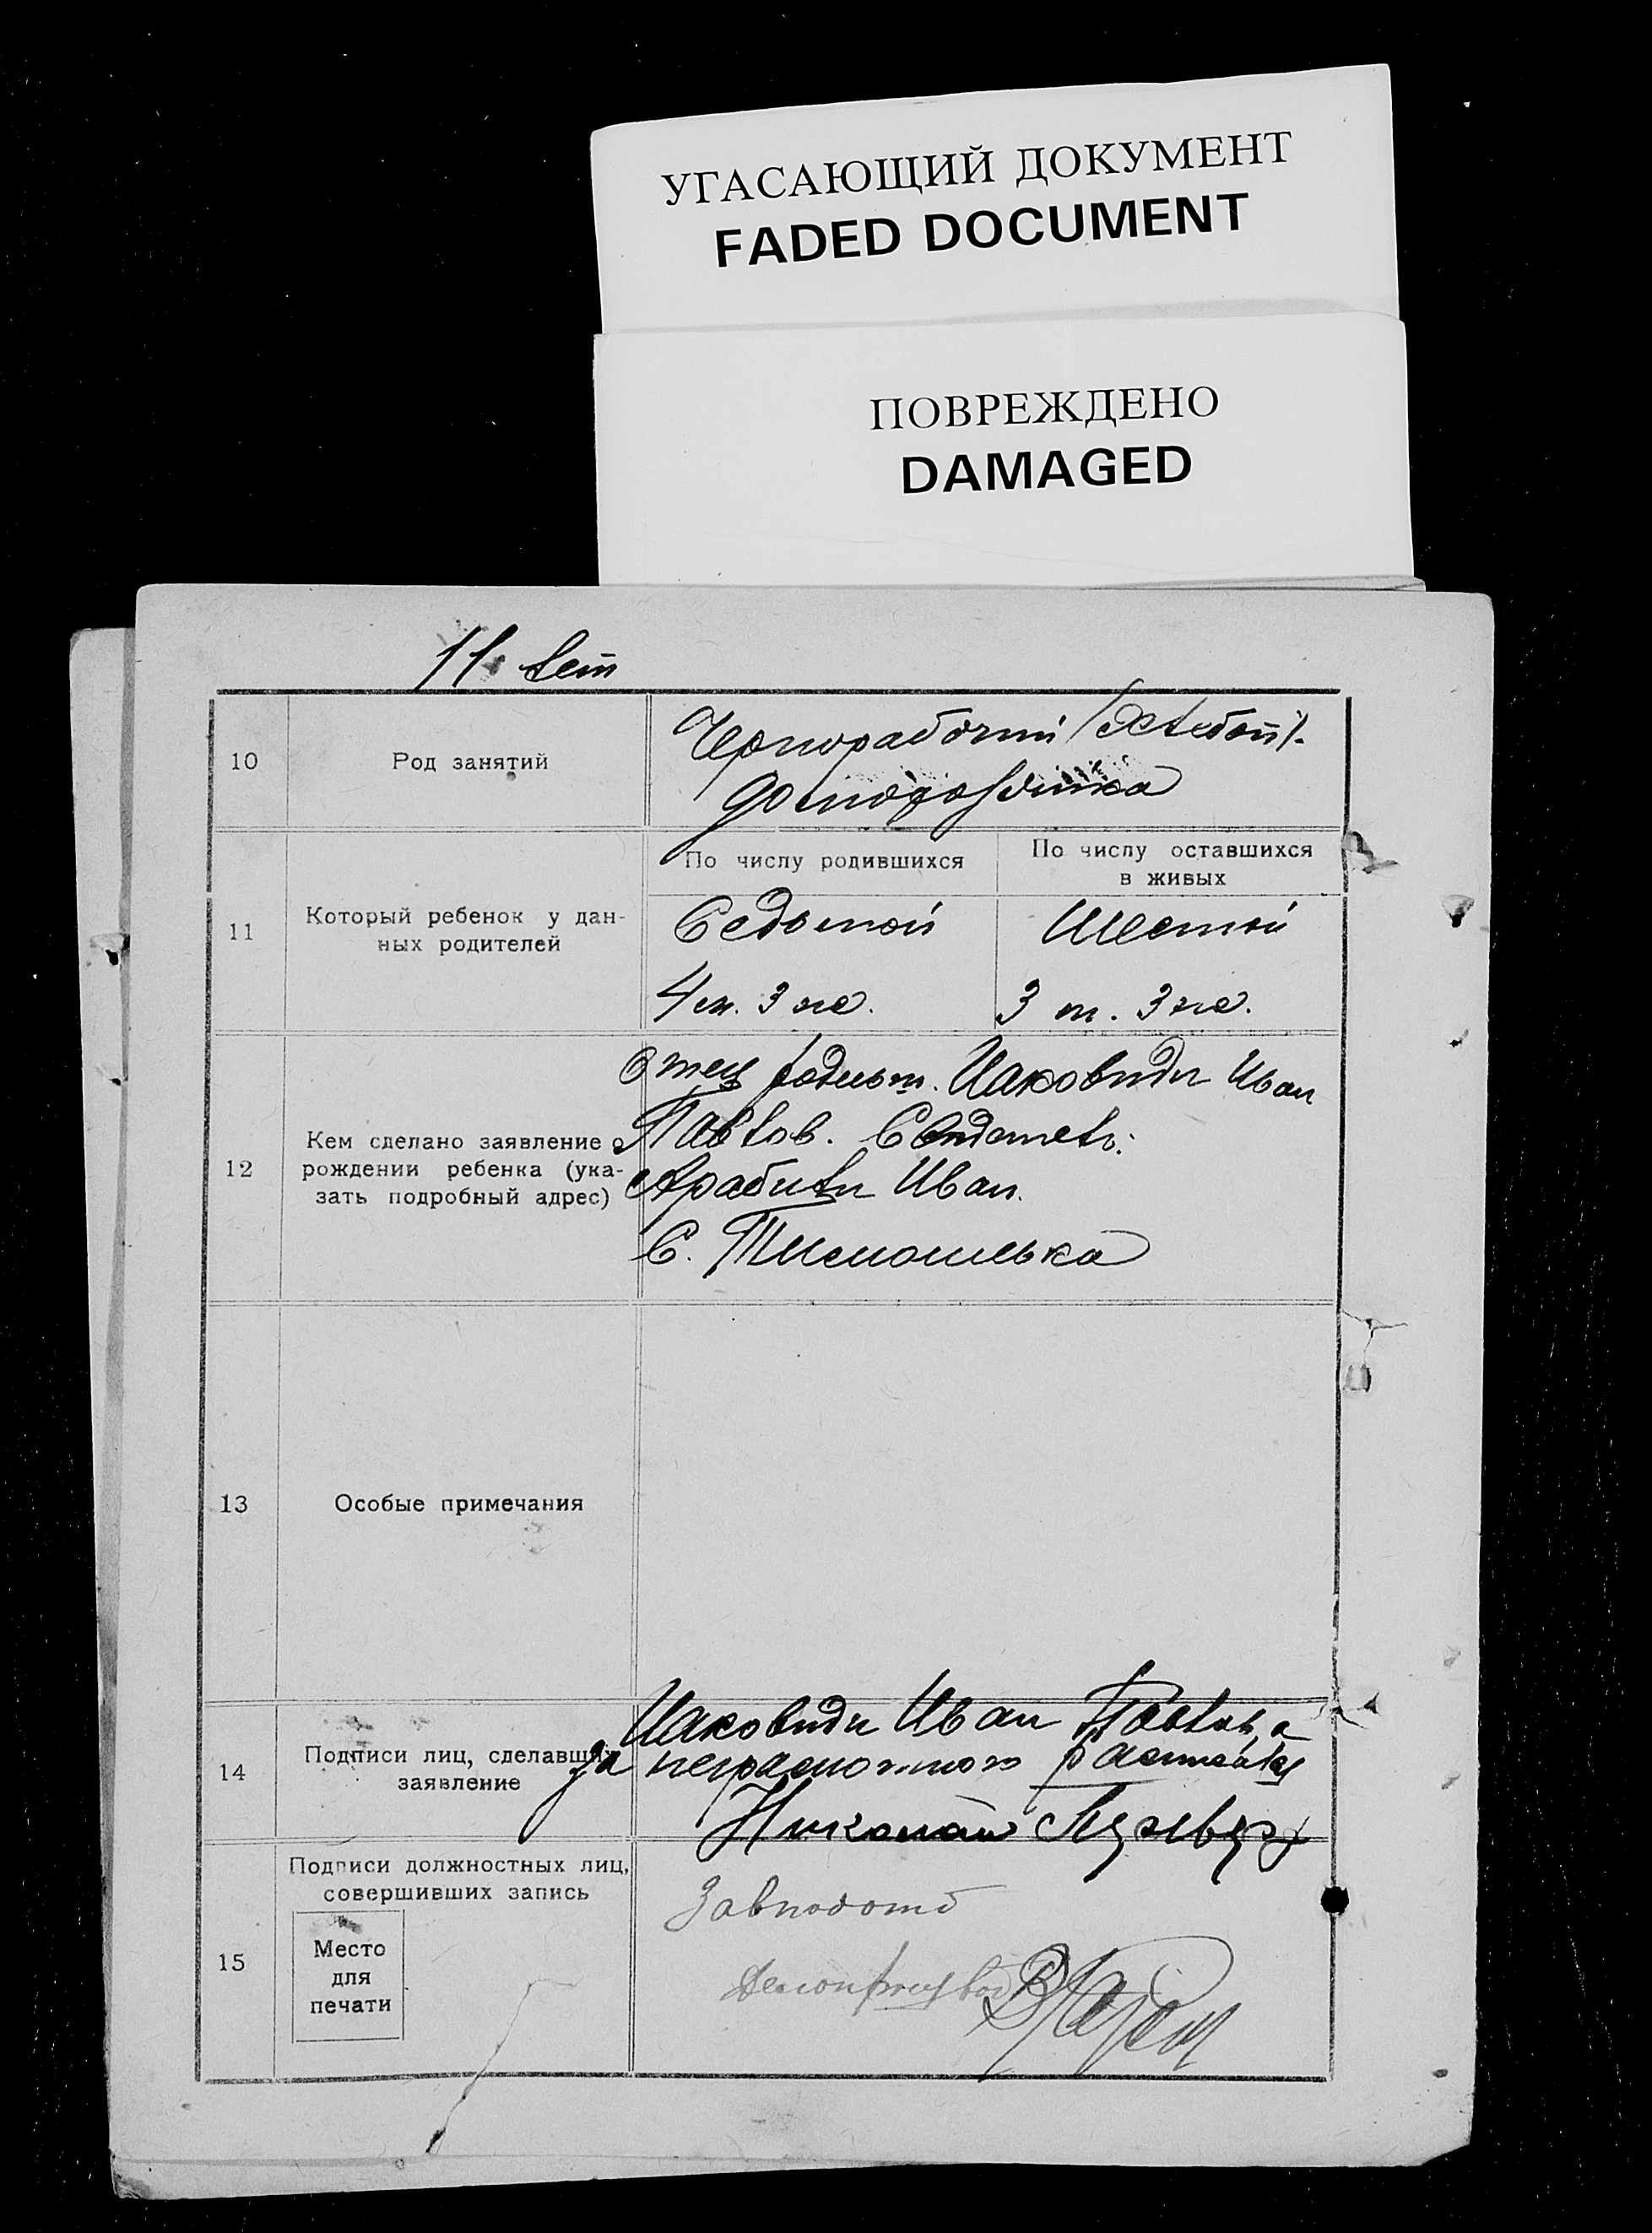 УГАСАЮЩИЙ ДОКУМЕНТ
FADED DOCUMENT
ПОВРЕЖДЕНО
DAMAGED
11 лет
10
Род занятий
Чернорабочий
домохозяйка
11
Который ребенок у дан-
ных родителей
По числу родившихся
По числу оставшихся
в живых
Седьмой
Шестой
4 м. 3 же.
3 м. 3 же.
12
Кем сделано заявление о
рождении ребенка (ука-
зать подробный адрес)
Отец Иаковиди Иван
Павлов. Свидетель:
Иван.
С.
13
Особые примечания
14
Подписи лиц, сделавших
заявление
Иаковиди Иван Павлов, а
за неграмотного
Николай
15
Подписи должностных лиц,
совершивших запись
Место
для
печати